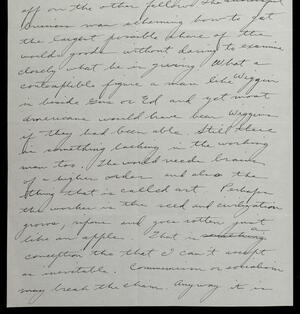 off on the other fellow. The successful
American was scheming how to get
the largest possible share of the
worlds goods without daring to examine
closely what he is giving. What a
contemptible figure a man like Wiggin
is beside Gene or Ed and yet most
Americans would have been Wiggins
if they had been able. Still there
is something lacking in the working
man too. The world needs brains
of a higher order and also the
thing that is called art. Perhaps
the worker is the seed and civilization
grows, ripens and goes rotten just
like an apple. That is something a
conception tho that I can't accept
as inevitable. Communism or socialism
may break the chain. Anyway it is